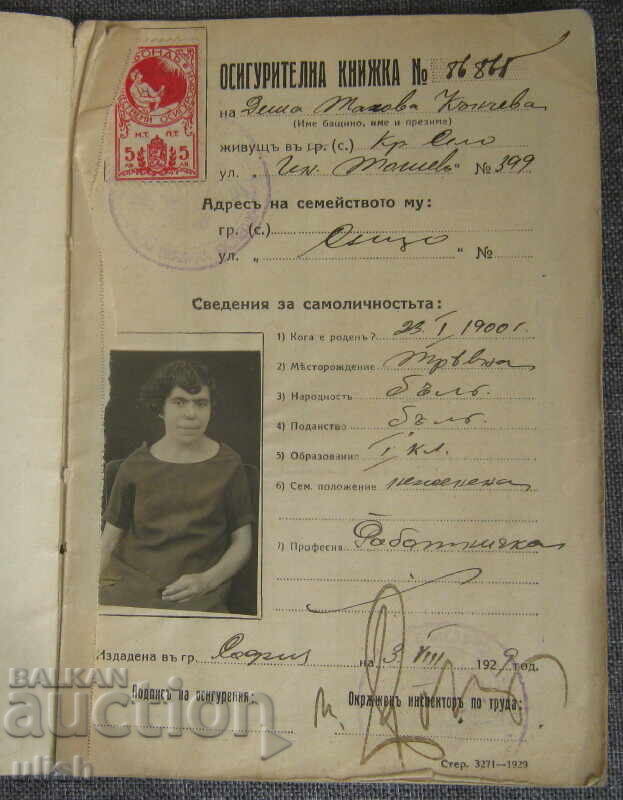 ФОНДЪ
5 ЛВ
5 ЛВ
ОСИГУРИТЕЛНА КНИЖКА №
на Деша Кънчева
(Име бащино, име и презиме)
живущъ въ гр. (с.) Кр. Село
ул. „Ген. “ № 399
Адресъ на семейството му:
гр. (с.)
ул. „ Също “ №
Сведения за самоличностьта:
1) Кога е роденъ? 23 I 1900 г.
2) Мѣсторождение Трѣвна
3) Народность бълг.
4) Поданство бълг.
5) Образование I кл.
6) Сем. положение неженена
7) Професия Работничка
Издадена въ гр. София на 3 VIII 1929 год.
Подпись на осигурения:
Окрѫженъ инспекторъ по труда:
Стер. 3271—1929
BALKAN
auction
ulish